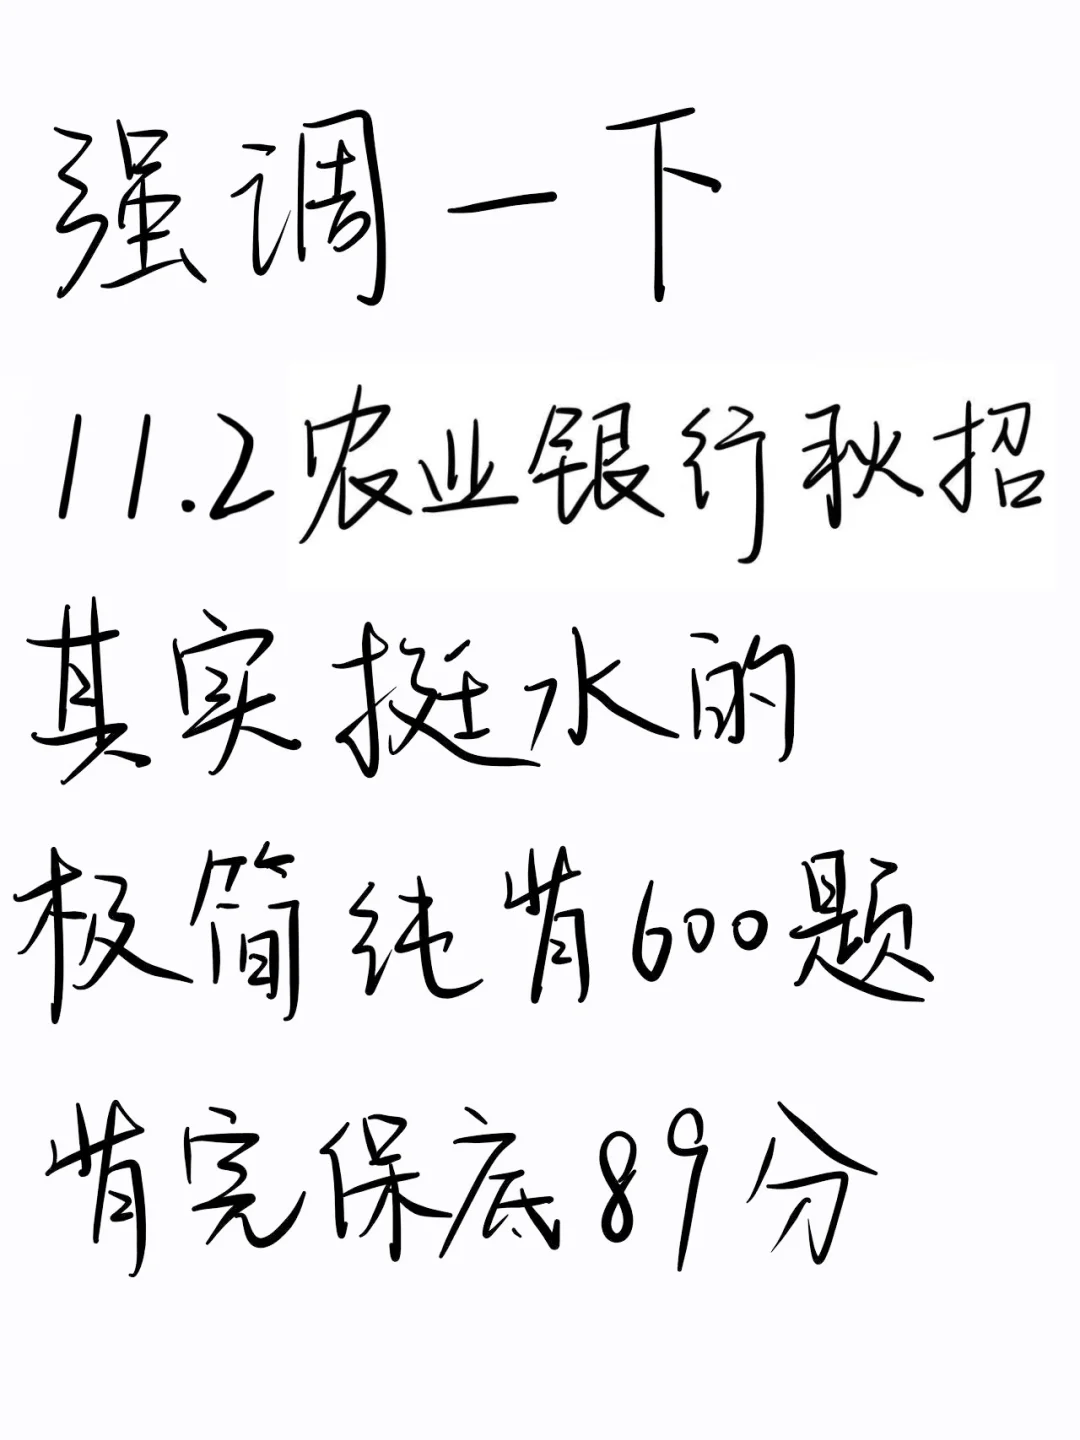 强调一下
11.2农业银行秋招
其实挺水的
极简纯背600题
背完保底89分